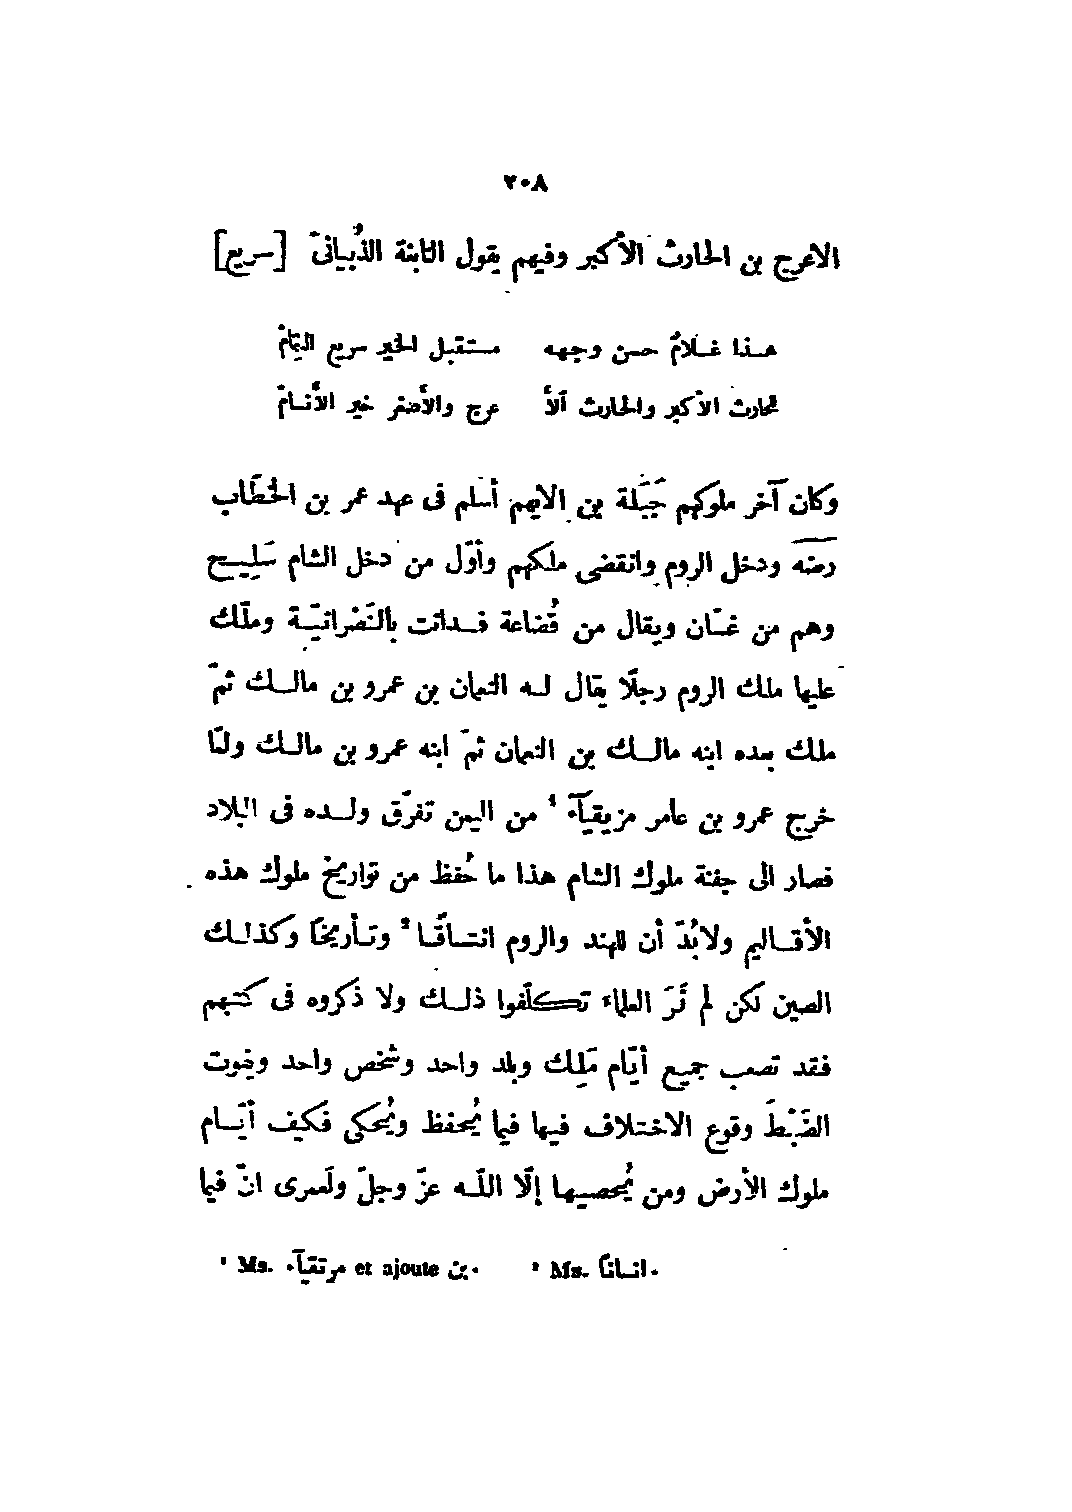 ٢٠٨
الاعرج بن الحارث الأكبر وفيهم يقول النابغة الذُبيانىّ [سريع]
هـذا غـلامٌ حسن وجهه مستقبل الخير سريع التِمَامْ
للحارث الاكبر والحارث ٱلأَ عرج والأصغر خير الأَنـامْ
وكان آخر ملوكهم جَبَلَة بن الايهم أسلم فى عهد عمر بن الخطّاب
رضه ودخل الروم وانقضى ملكهم وأوّل من دخل الشام سَلِيح
وهم من غسّان ويقال من قُضاعة فدانت بالنَصْرانيّة وملّك
عليها ملك الروم رجلًا يقال له النعمان بن عمرو بن مالك ثمّ
ملك بعده ابنه مالك بن النعمان ثمّ ابنه عمرو بن مالك ولمّا
خرج عمرو بن عامر مزيقيآء ¹ من اليمن تفرّق ولده فى البلاد
فصار الى جفنة ملوك الشام هذا ما حُفظ من تواريخ ملوك هذه
الأقاليم ولابُدّ أن للهند والروم اتساقًا ² وتأريخًا وكذلك
الصين لكن لم نَرَ العلماء تكلّفوا ذلك ولا ذكروه فى كتبهم
فقد تصعب جميع أيّام مَلِك وبلد واحد وشخص واحد ويفوت
الضَبْطَ وقوع الاختلاف فيها فيما يُحفظ ويُحكى فكيف أيّام
ملوك الأرض ومن يُحصيها إلّا اللّه عزّ وجلّ ولعمرى انّ فيما
¹ Ms. مرتقيآء et ajoute بن. ² Ms. انسانًا.